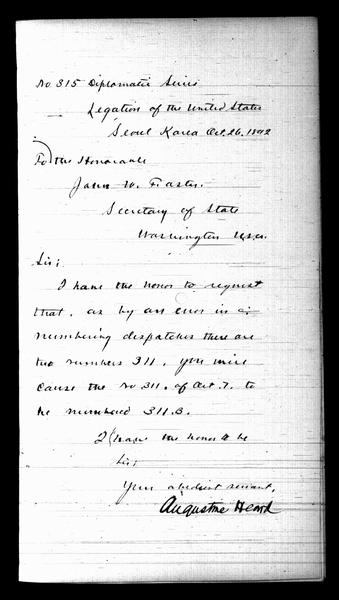 No 315 Diplomatic Series
Legation of the United States
Seoul Korea Oct. 26. 1892
To the Honorable
John W. Foster.
Secretary of State
Washington U.S.A.
Sir;
I have the honor to request
that, as by an error in
numbering despatches there are
two numbers 311, you will
cause the No 311. of Oct. 7. to
be numbered 311.B.
I have the honor to be
Sir;
Your obedient servant,
Augustine Heard